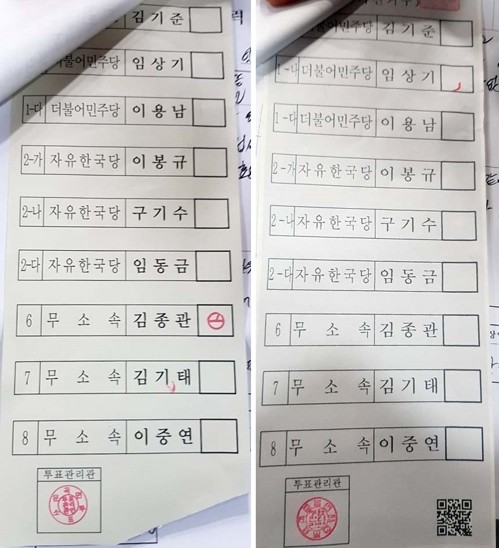 김기준
더불어민주당 임상기
1-다 더불어민주당 이용남
2-가 자유한국당 이봉규
2-나 자유한국당 구기수
2-다 자유한국당 임동금
6 무소속 김종관
7 무소속 김기태
8 무소속 이중연
투표관리관
더불어민주당 김기준
1-나 더불어민주당 임상기
1-다 더불어민주당 이용남
2-가 자유한국당 이봉규
2-나 자유한국당 구기수
2-다 자유한국당 임동금
6 무소속 김종관
7 무소속 김기태
8 무소속 이중연
투표관리관